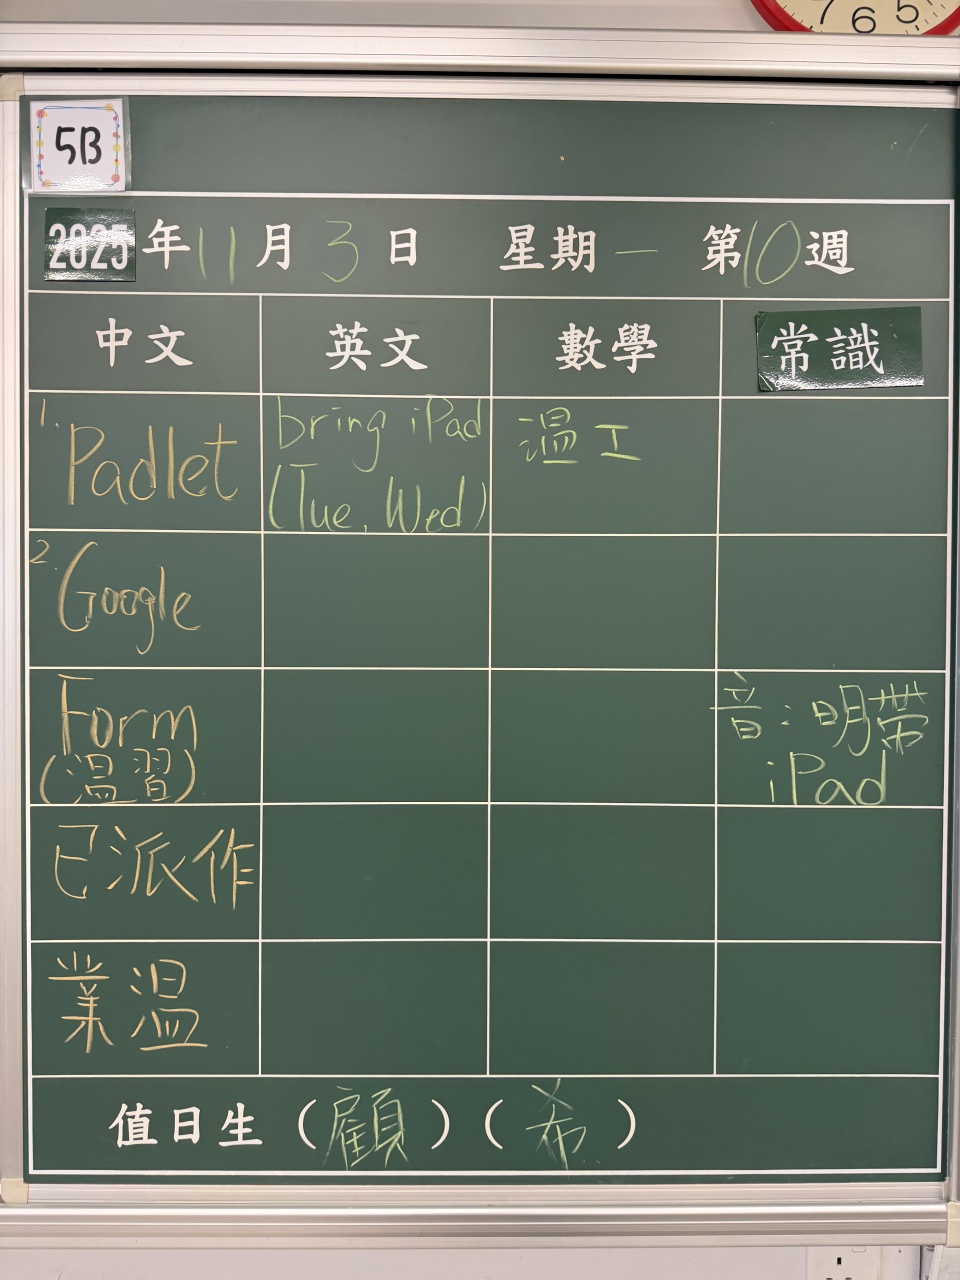 7 6 5
5B
2025年11月3日 星期一 第10週
中文 英文 數學 常識
1. Padlet
bring iPad
(Tue, Wed)
溫工
2. Google
Form
(溫習)
音:明帶
iPad
已派作
業溫
值日生(顧)(希)